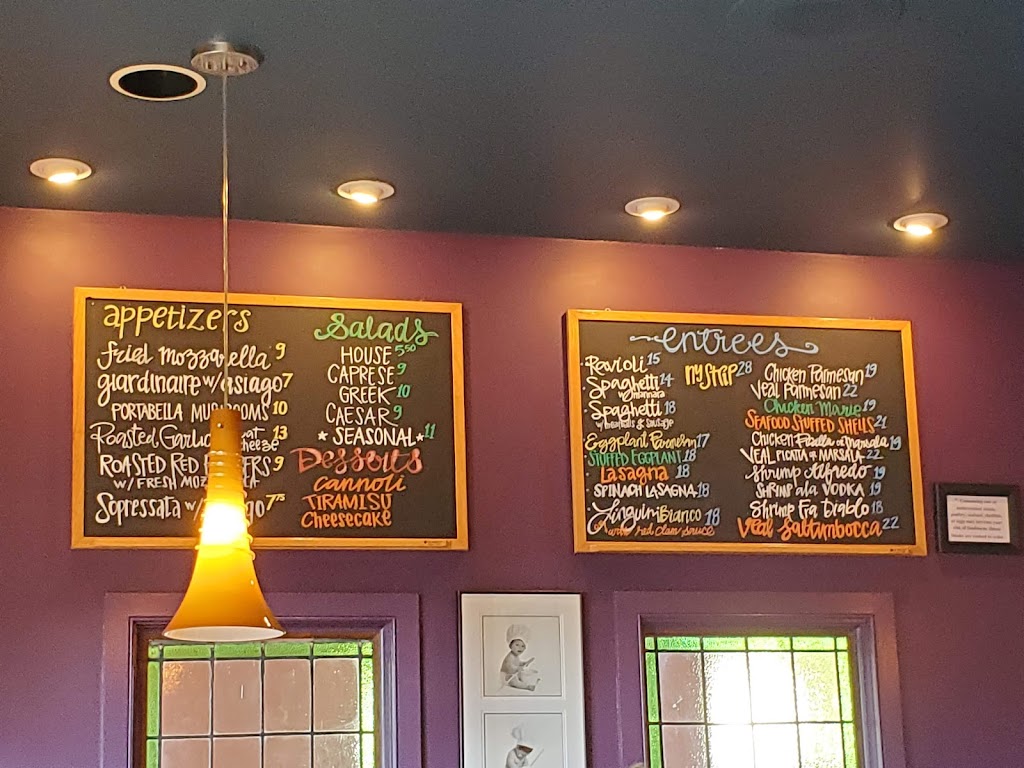 appetizers
fried mozzarella 9
giardinaire w/ asiago 7
PORTABELLA MUSHROOMS 10
Roasted Garlic 13
cheeze
ROASTED RED 9
w/ FRESH
Sopressata w/ 7.75
Salads
HOUSE 5.50
CAPRESE 9
GREEK 10
CAESAR 9
* SEASONAL * 11
Desserts
cannoli
TIRAMISU
Cheesecake
entrees
Ravioli 15
Spaghetti 14
w/ marinara
Spaghetti 18
w/ meatballs & sausage
Eggplant Parmesan 17
STUFFED EGGPLANT 18
Lasagna 18
SPINACH LASAGNA 18
Linguini Bianco 18
or with red clam sauce
NY STRIP 28
Chicken Parmesan 19
Veal Parmesan 22
Chicken Marie 19
SEAFOOD STUFFED SHELLS 21
Chicken Piccata or Marsala 19
VEAL PICATA or MARSALA 22
Shrimp Alfredo 19
SHRIMP ala VODKA 19
Shrimp Fra Diablo 18
Veal Saltumbocca 22